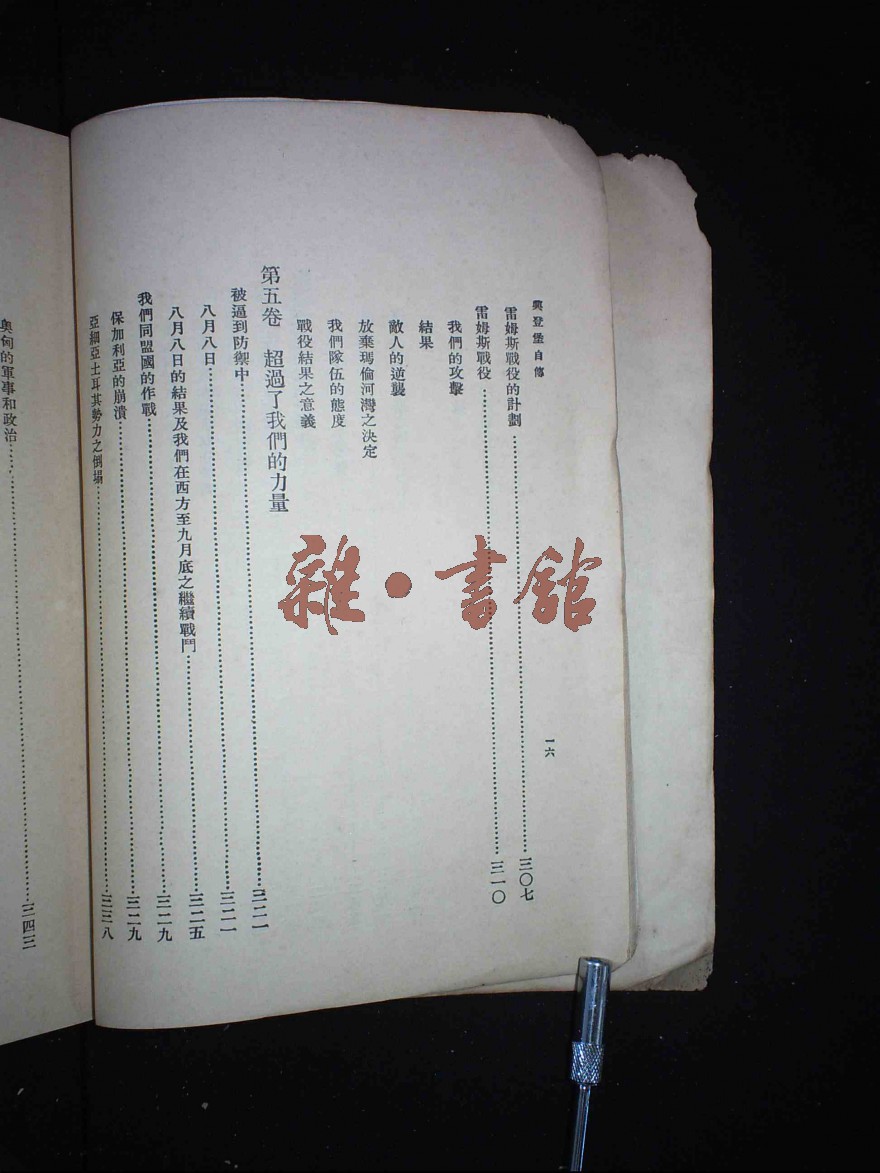 興登堡自傳
一六
雷姆斯戰役的計劃……三〇七
雷姆斯戰役……三一〇
我們的攻擊
結果
敵人的逆襲
放棄瑪倫河灣之決定
我們隊伍的態度
戰役結果之意義
第五卷 超過了我們的力量
被逼到防禦中……三二一
八月八日……三二一
八月八日的結果及我們在西方至九月底之繼續戰鬥……三二五
我們同盟國的作戰……三二九
保加利亞的崩潰……三二九
亞細亞土耳其勢力之倒塌……三三八
奧匈的軍事和政治……三四三
雜·書館